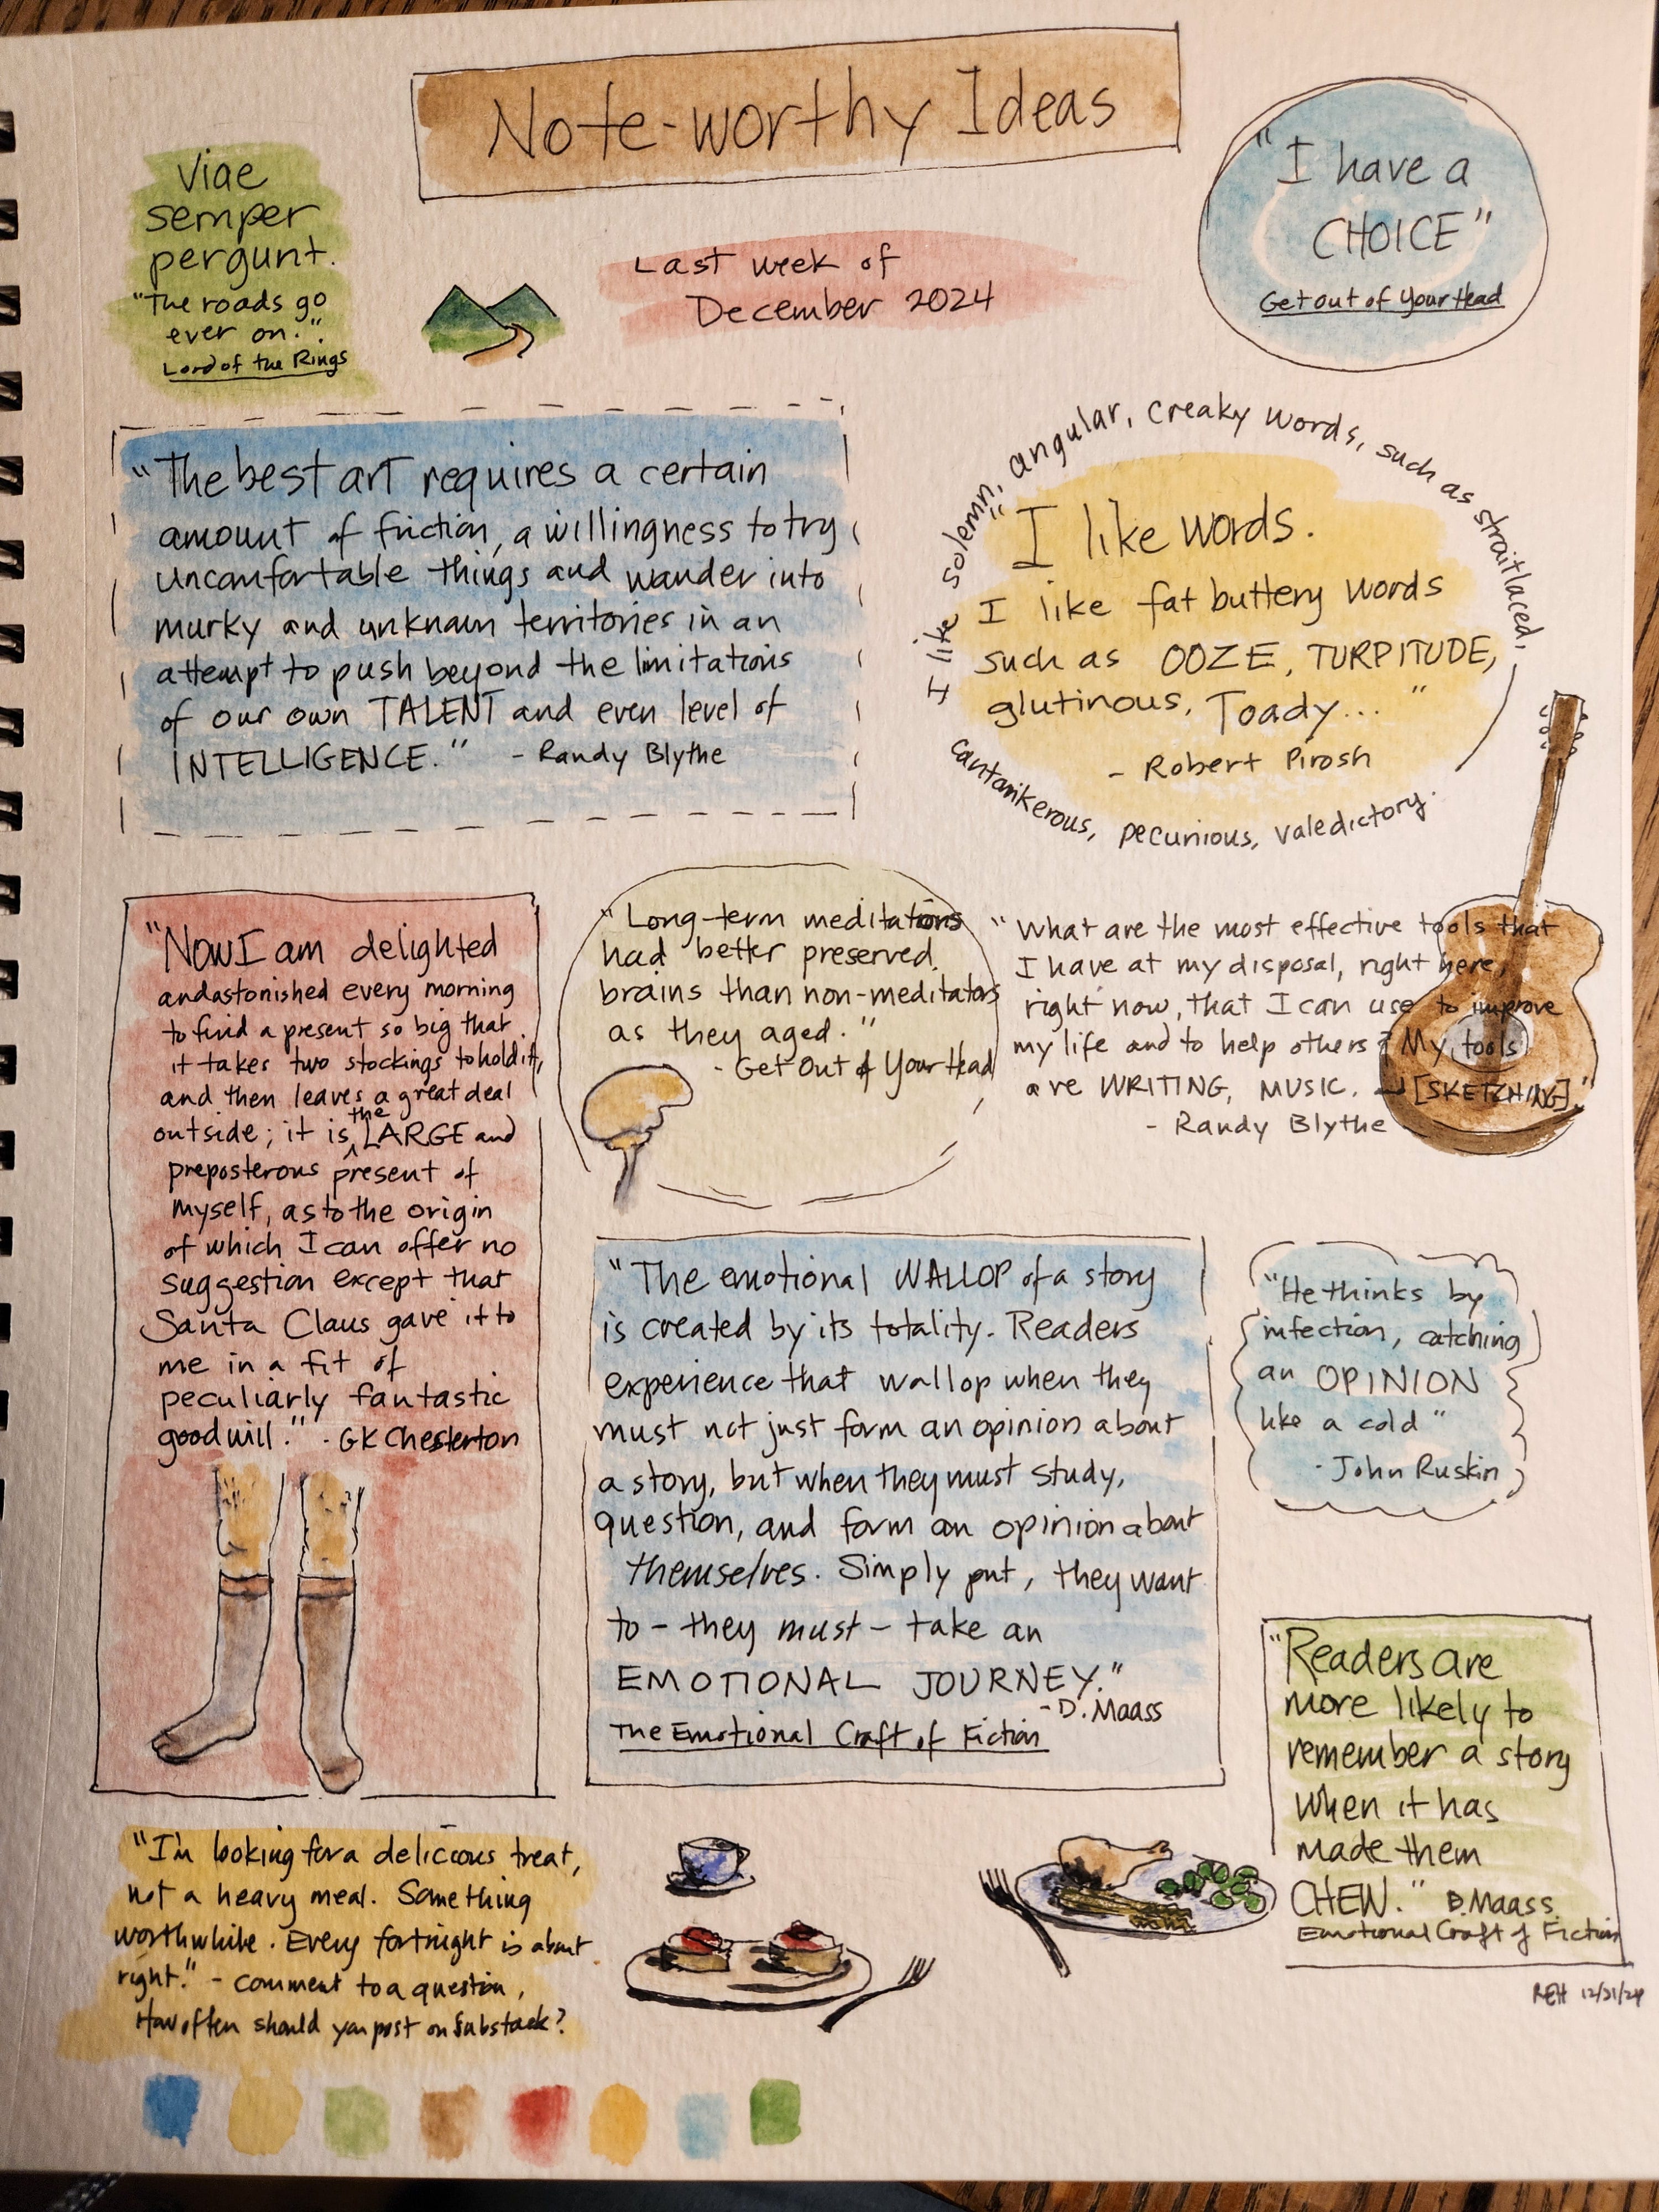 Note-worthy Ideas
Viae
semper
pergunt.
"The roads go
ever on."
Lord of the Rings
Last week of
December 2024
"I have a
CHOICE"
Get out of Your Head
"The best art requires a certain
amount of friction, a willingness to try
uncomfortable things and wander into
murky and unknown territories in an
attempt to push beyond the limitations
of our own TALENT and even level of
INTELLIGENCE." - Randy Blythe
"I like words.
I like fat buttery words
such as OOZE, TURPITUDE,
glutinous, Toady..."
- Robert Pirosh
I like solemn, angular, creaky words, such as straitlaced,
cantankerous, pecunious, valedictory.
"Now I am delighted
and astonished every morning
to find a present so big that
it takes two stockings to hold it,
and then leaves a great deal
outside; it is the LARGE and
preposterous present of
myself, as to the origin
of which I can offer no
suggestion except that
Santa Claus gave it to
me in a fit of
peculiarly fantastic
goodwill." - GK Chesterton
"Long-term meditators
had better preserved
brains than non-meditators
as they aged."
- Get Out of Your Head
"What are the most effective tools that
I have at my disposal, right here,
right now, that I can use to improve
my life and to help others? My tools
are WRITING, MUSIC. [SKETCHING]."
- Randy Blythe
"The emotional WALLOP of a story
is created by its totality. Readers
experience that wallop when they
must not just form an opinion about
a story, but when they must study,
question, and form an opinion about
themselves. Simply put, they want
to - they must - take an
EMOTIONAL JOURNEY."
- D. Maass
The Emotional Craft of Fiction
"He thinks by
infection, catching
an OPINION
like a cold"
- John Ruskin
"Readers are
more likely to
remember a story
when it has
made them
CHEW." D. Maass
Emotional Craft of Fiction
REH 12/31/24
"I'm looking for a delicious treat,
not a heavy meal. Something
worthwhile. Every fortnight is about
right." - comment to a question,
How often should you post on Substack?